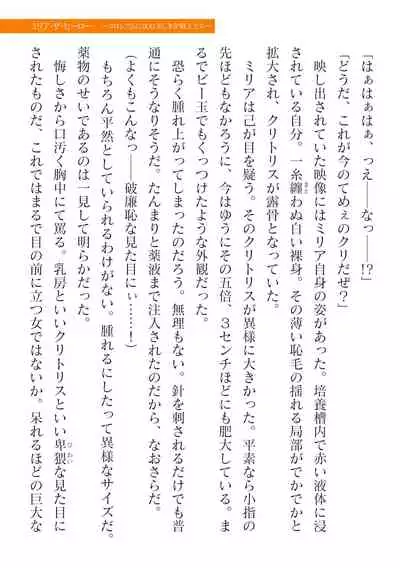 ミリア・ザ・ヒーロー
「はぁはぁはぁ、っえ――なっ――!?」
「どうだ、これが今のてめぇのクリだぜ？」
映し出されていた映像にはミリア自身の姿があった。培養槽内で赤い液体に浸
っている自分。一糸纏わぬ白い裸身。その薄い恥毛の揺れる局部がでかでかと
拡大され、クリトリスが露骨となっていた。
ミリアは己が目を疑う。そのクリトリスが異様に大きかった。平素なら小指の
先ほどもなかろうに、今はゆうにその五倍、３センチほどにも肥大している。ま
るでビー玉でもくっつけたような外観だった。
恐らく腫れ上がってしまったのだろう。無理もない。針を刺されるだけでも普
通にそうなりそうだ。たんまりと薬液まで注入されたのだから、なおさらだ。
（よくもこんなっ――破廉恥な見た目にぃ……！）
もちろん平然としていられるわけがない。腫れるにしたって異様なサイズだ。
薬物のせいであるのは一見して明らかだった。
悔しさから口汚く胸中にて罵る。乳房といいクリトリスといい卑猥な見た目に
されたものだ、これではまるで目の前に立つ女ではないか。呆れるほどの巨大な